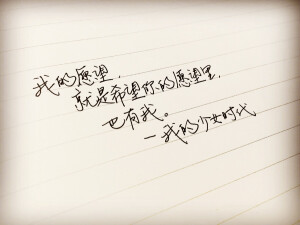 我的愿望，
就是希望你的愿望里，
也有我。
—我的少女时代